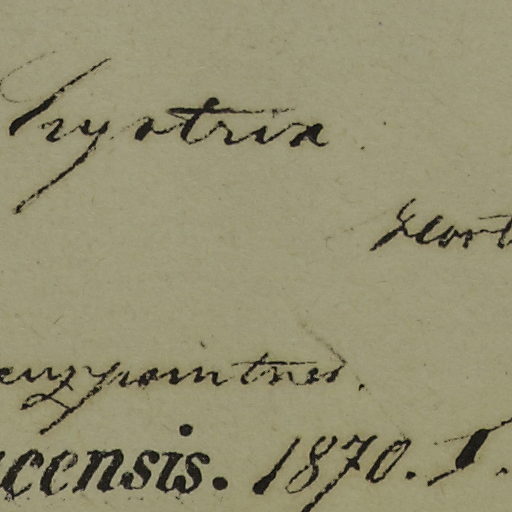 Hystrix
Hort
euzpointner.
censis. 1870. I.